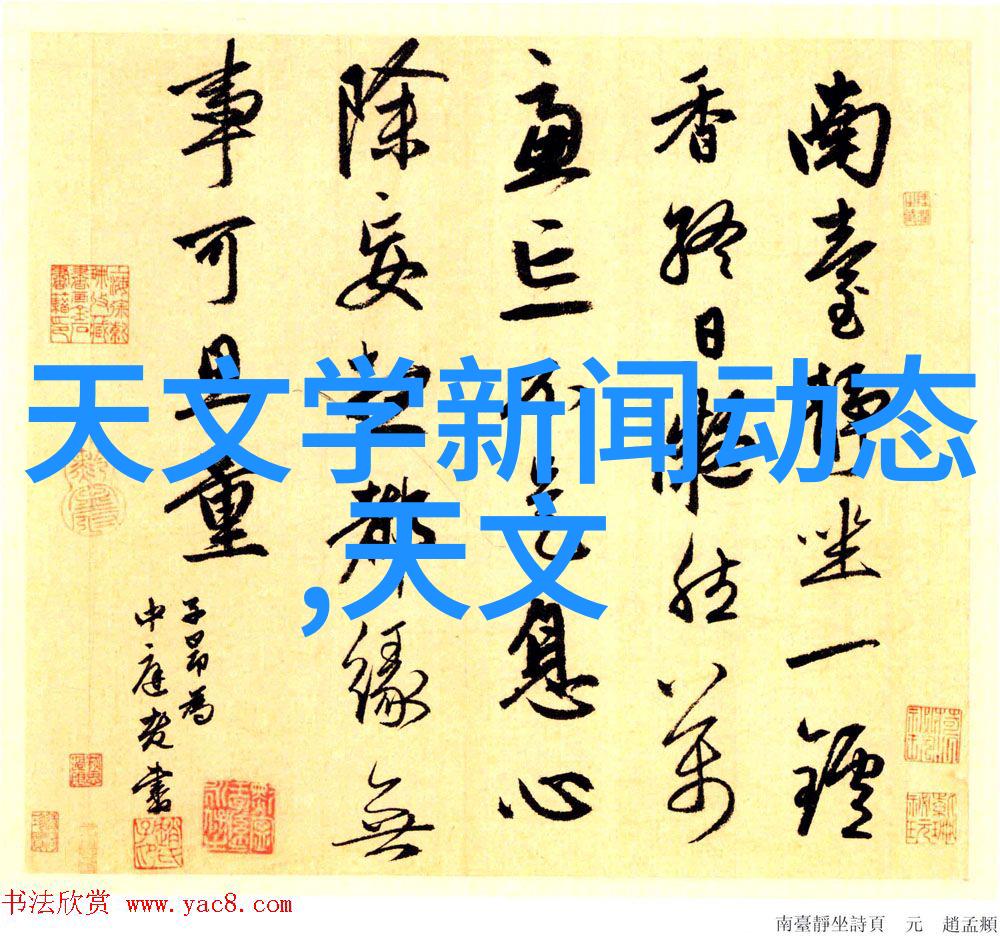 南臺靜坐一鑪
香終日凝然萬
慮亡不是息心
除妄想都緣無
事可思量
子昂為
中庭老書
天文学新闻动态
,天文
书法欣赏 www.yac8.com
南臺靜坐詩頁 元 趙孟頫